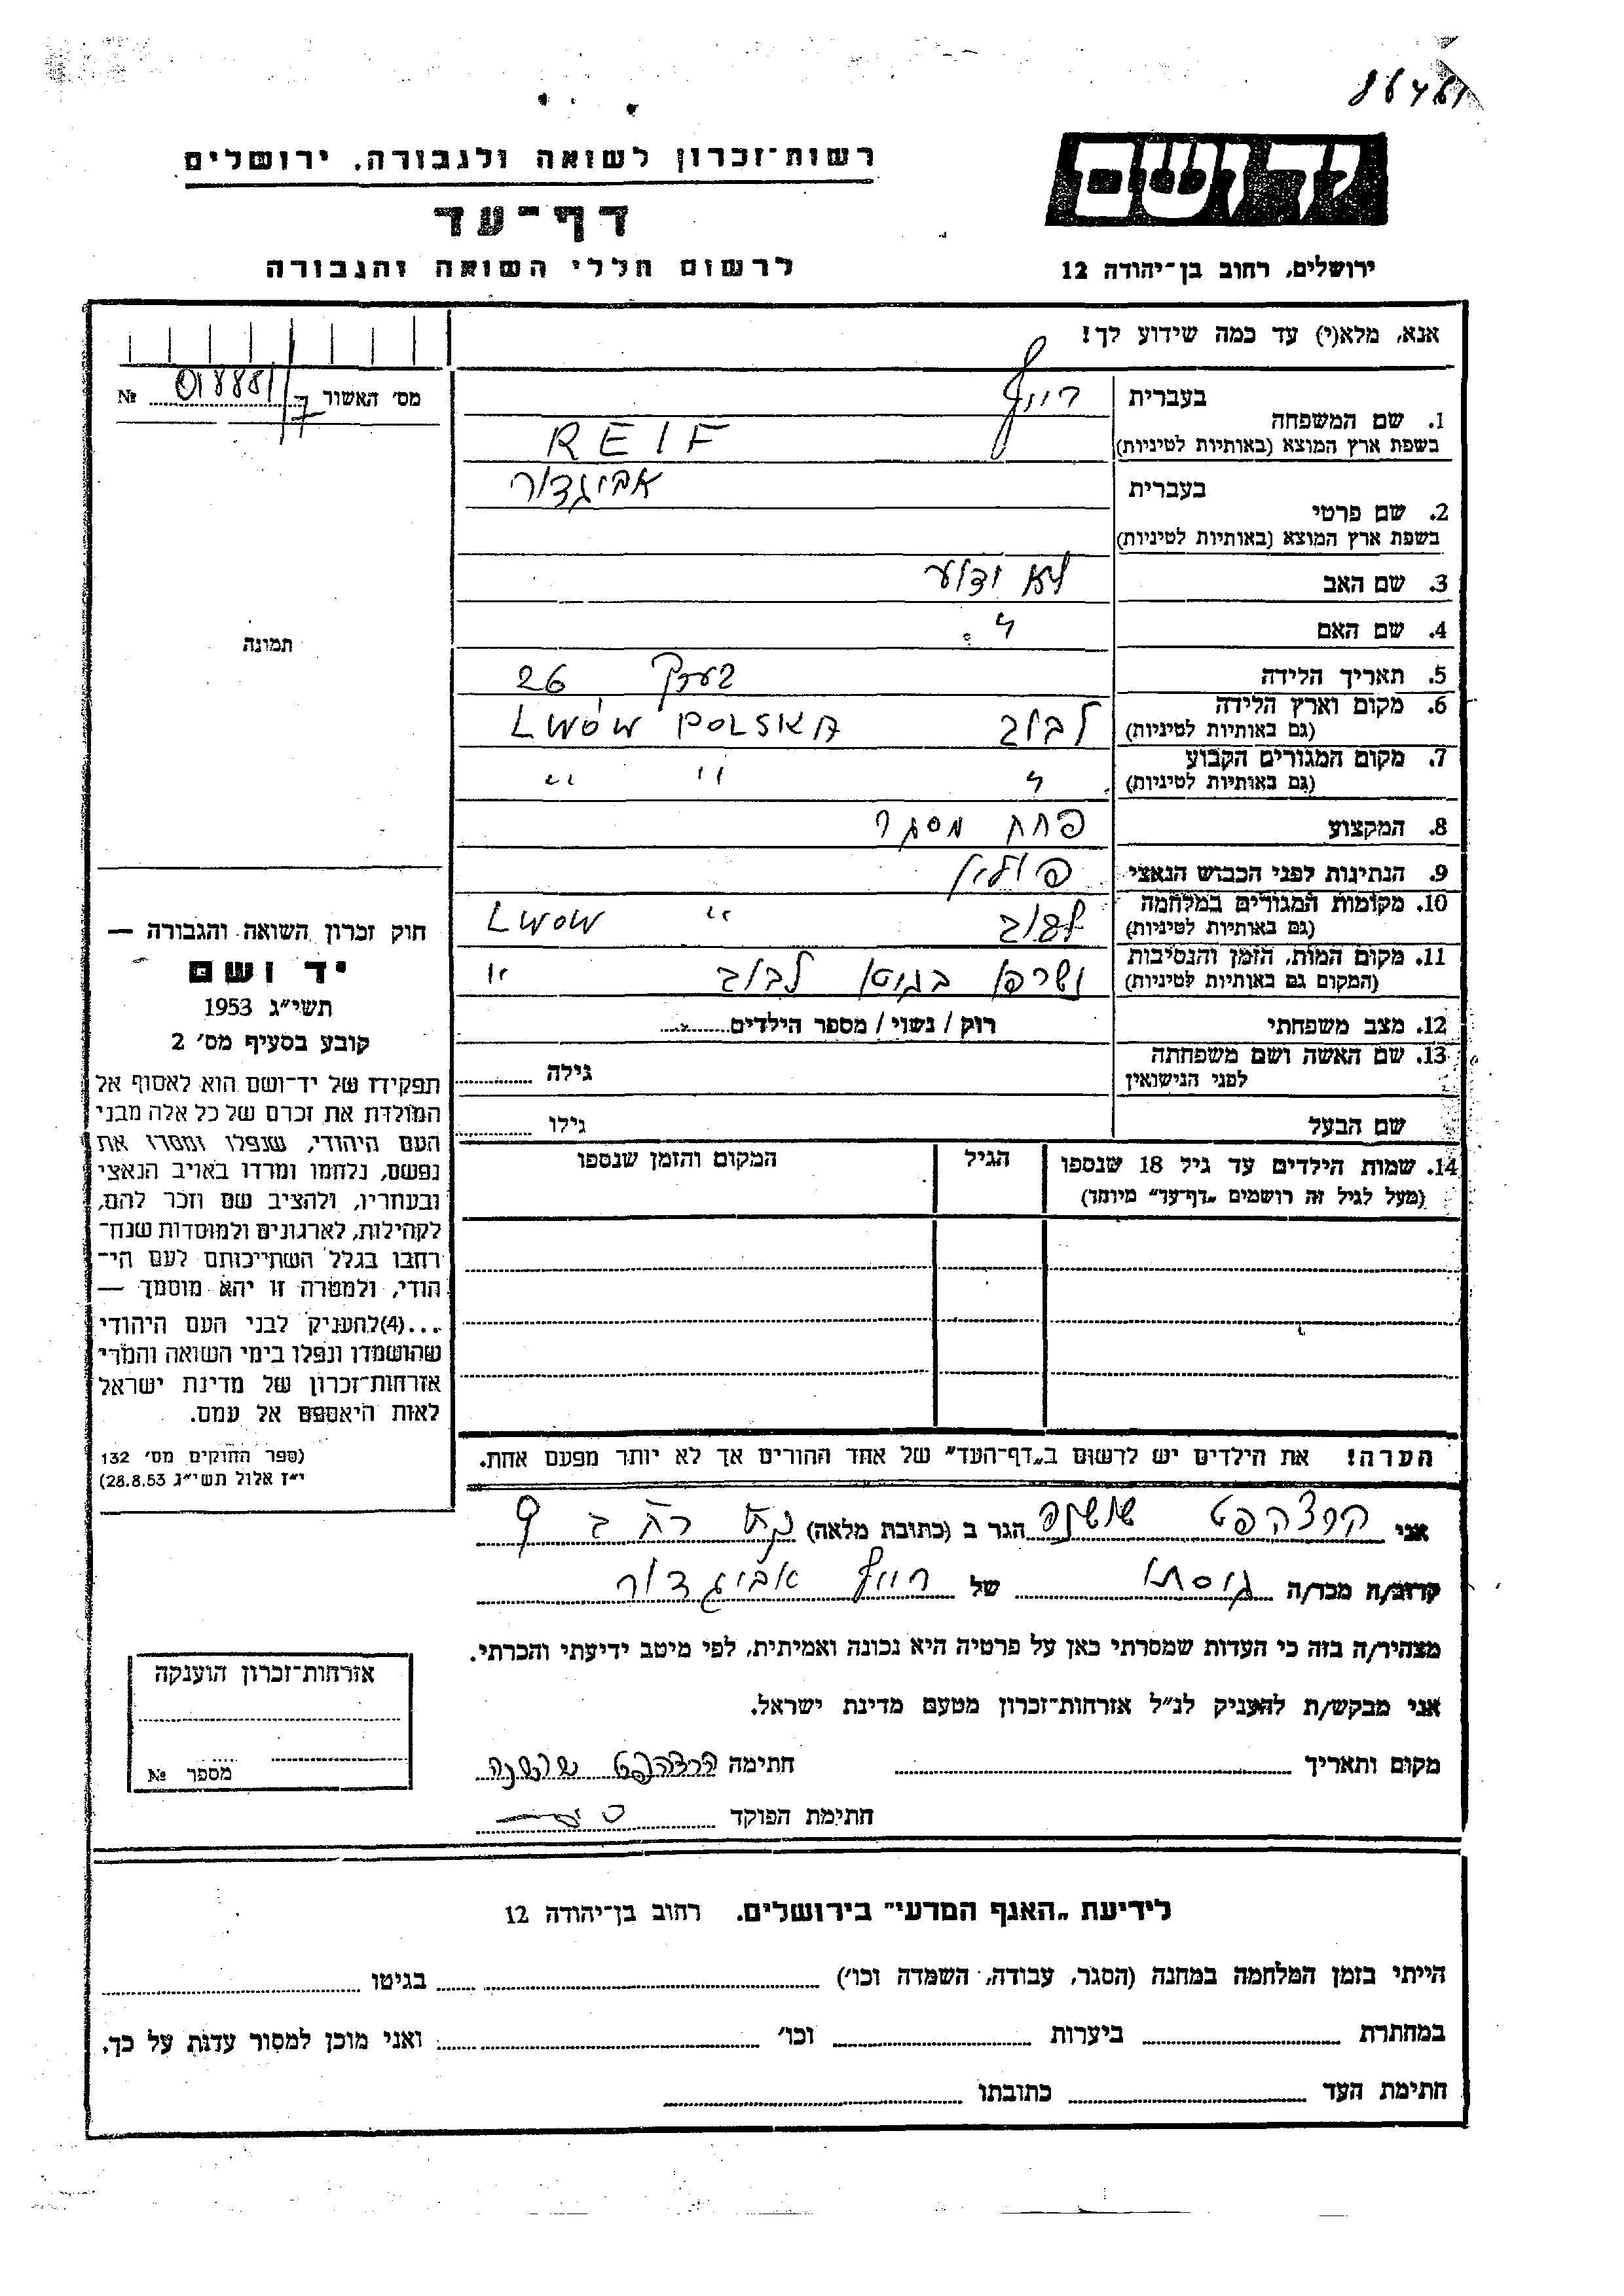 86461
יד ושם
רשות־זכרון לשואה ולגבורה. ירושלים
דף־עד
ירושלים, רחוב בן־יהודה 12
לרשום חללי השואה והגבורה
אנא, מלא(י) עד כמה שידוע לך!
מס׳ האשור № 018881/7
תמונה
1. שם המשפחה
בעברית רייף
בשפת ארץ המוצא (באותיות לטיניות) REIF
2. שם פרטי
בעברית אביגדור
בשפת ארץ המוצא (באותיות לטיניות)
3. שם האב לא ידוע
4. שם האם "
5. תאריך הלידה בערך 26
6. מקום וארץ הלידה
(גם באותיות לטיניות) לבוב LWÓW POLSKA
7. מקום המגורים הקבוע
(גם באותיות לטיניות) " " "
8. המקצוע פחח מסגר
9. הנתינות לפני הכבוש הנאצי פולין
10. מקומות המגורים במלחמה
(גם באותיות לטיניות) לבוב " LWOW
11. מקום המות, הזמן והנסיבות
(המקום גם באותיות לטיניות) בגיטו לבוב "
12. מצב משפחתי רוק / נשוי / מספר הילדים
13. שם האשה ושם משפחתה
לפני הנישואין גילה
שם הבעל גילו
14. שמות הילדים עד גיל 18 שנספו הגיל המקום והזמן שנספו
(מעל לגיל זה רושמים „דף־עד״ מיוחד)
חוק זכרון השואה והגבורה —
יד ושם
תשי״ג 1953
קובע בסעיף מס׳ 2
תפקידו של יד־ושם הוא לאסוף אל
המולדת את זכרם של כל אלה מבני
העם היהודי, שנפלו ומסרו את
נפשם, נלחמו ומרדו באויב הנאצי
ובעוזריו, ולהציב שם וזכר להם,
לקהילות, לארגונים ולמוסדות שנח־
רחבו בגלל השתייכותם לעם הי־
הודי, ולמטרה זו יהא מוסמך —
...(4)להעניק לבני העם היהודי
שהושמדו ונפלו בימי השואה והמרי
אזרחות־זכרון של מדינת ישראל
לאות היאספם אל עמם.
(ספר החוקים מס׳ 132
י״ז אלול תשי״ג 28.8.53)
הערה! את הילדים יש לרשום ב„דף־העד״ של אחד ההורים אך לא יותר מפעם אחת.
אני שושנה הגר ב (כתובת מלאה)
קרוב/ה מכר/ה גיסתו של רייף אביגדור
מצהיר/ה בזה כי העדות שמסרתי כאן על פרטיה היא נכונה ואמיתית, לפי מיטב ידיעתי והכרתי.
אני מבקש/ת להעניק לנ״ל אזרחות־זכרון מטעם מדינת ישראל.
מקום ותאריך חתימה שושנה
חתימת הפוקד
אזרחות־זכרון הוענקה
מספר №
לידיעת „האגף המדעי״ בירושלים. רחוב בן־יהודה 12
הייתי בזמן המלחמה במחנה (הסגר, עבודה, השמדה וכו׳) בגיטו
במחתרת ביערות וכו׳ ואני מוכן למסור עדות על כך.
חתימת העד כתובתו